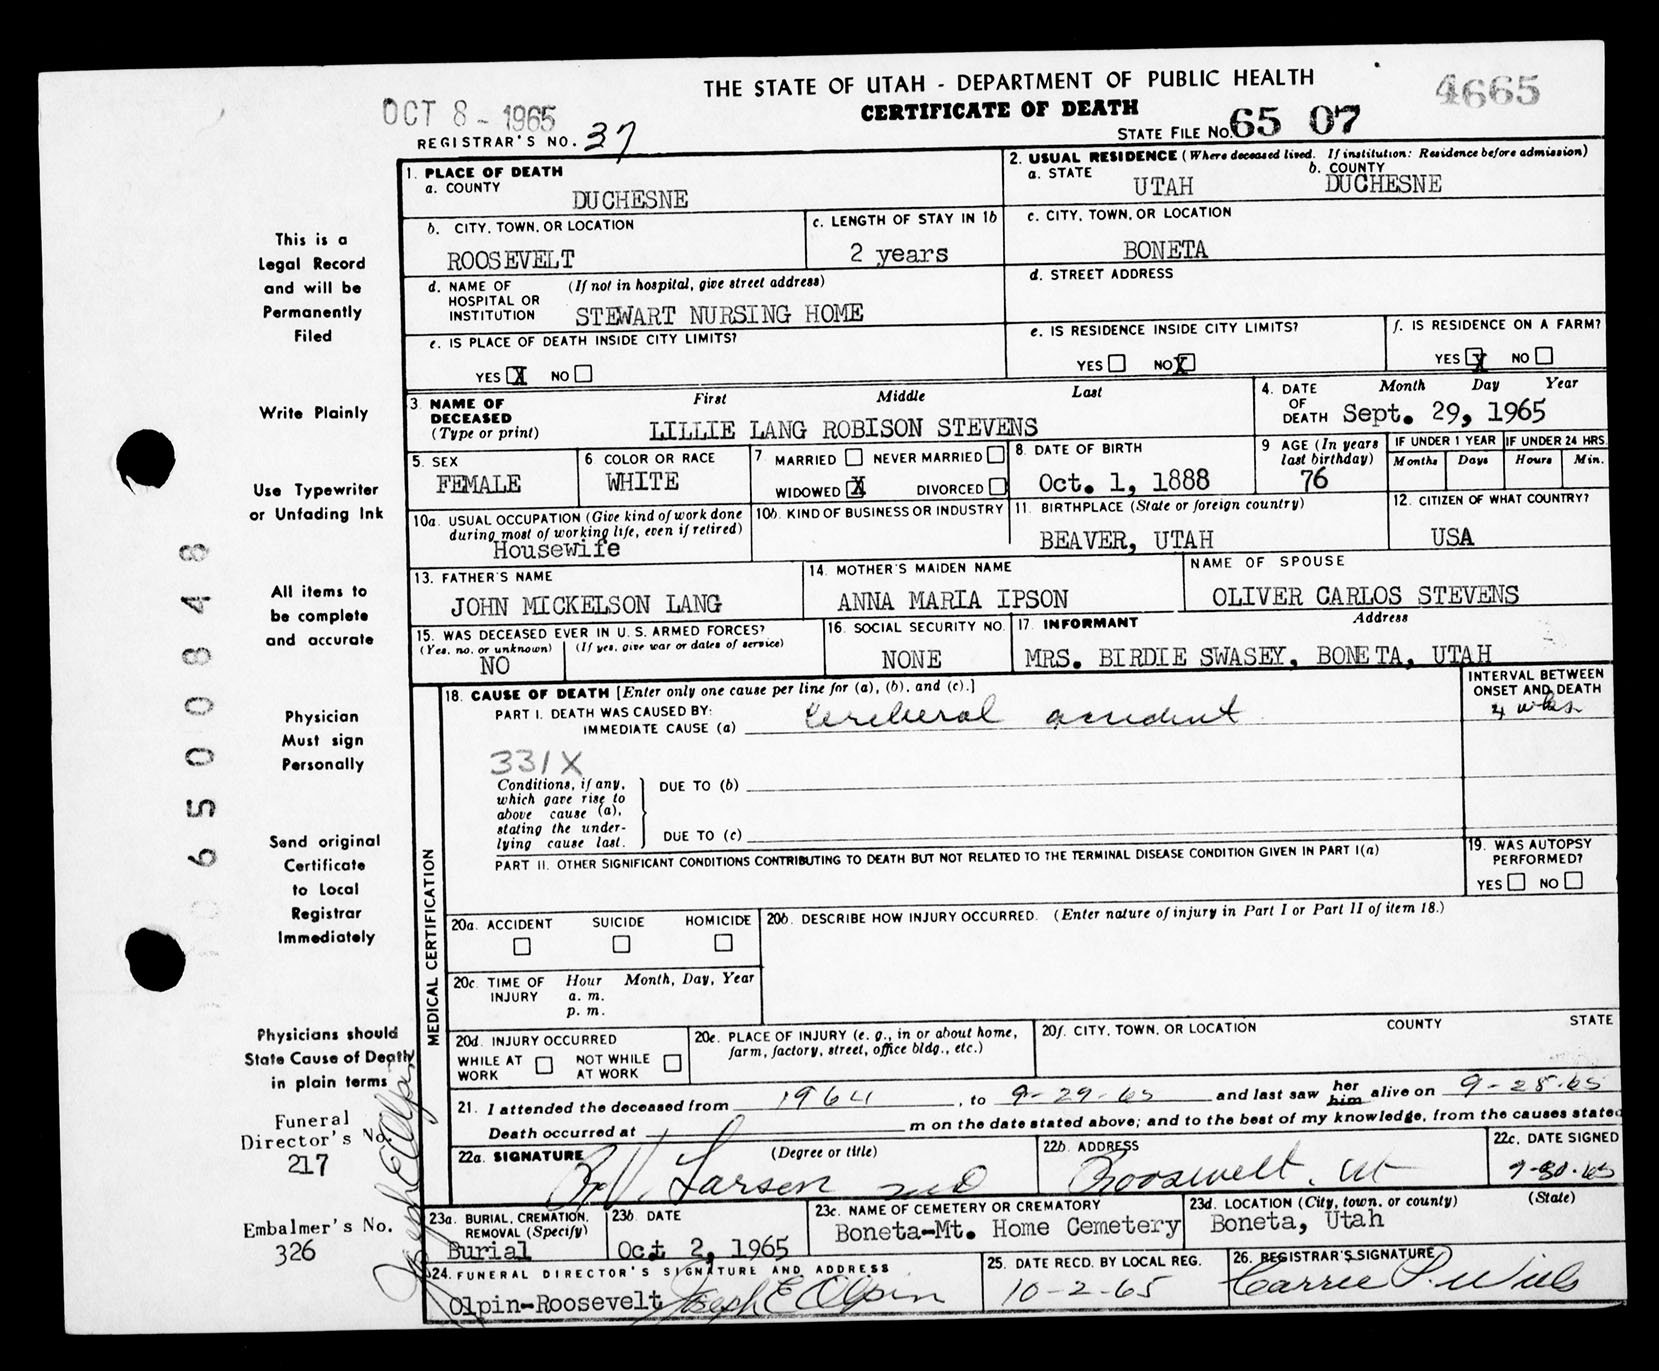 THE STATE OF UTAH - DEPARTMENT OF PUBLIC HEALTH
CERTIFICATE OF DEATH
4665
OCT 8 - 1965
REGISTRAR'S NO. 37
STATE FILE NO. 65 07
1. PLACE OF DEATH
a. COUNTY
DUCHESNE
2. USUAL RESIDENCE (Where deceased lived. If institution: Residence before admission)
a. STATE
UTAH
b. COUNTY
DUCHESNE
b. CITY, TOWN, OR LOCATION
ROOSEVELT
c. LENGTH OF STAY IN 1b
2 years
c. CITY, TOWN, OR LOCATION
BONETA
d. NAME OF HOSPITAL OR INSTITUTION
(If not in hospital, give street address)
STEWART NURSING HOME
d. STREET ADDRESS
e. IS PLACE OF DEATH INSIDE CITY LIMITS?
YES X NO
e. IS RESIDENCE INSIDE CITY LIMITS?
YES NO X
f. IS RESIDENCE ON A FARM?
YES X NO
3. NAME OF DECEASED
(Type or print)
First Middle Last
LILLIE LANG ROBISON STEVENS
4. DATE OF DEATH
Month Day Year
Sept. 29, 1965
5. SEX
FEMALE
6. COLOR OR RACE
WHITE
7. MARRIED NEVER MARRIED
WIDOWED X DIVORCED
8. DATE OF BIRTH
Oct. 1, 1888
9 AGE (In years last birthday)
76
IF UNDER 1 YEAR
Months Days
IF UNDER 24 HRS.
Hours Min.
10a. USUAL OCCUPATION (Give kind of work done during most of working life, even if retired)
Housewife
10b. KIND OF BUSINESS OR INDUSTRY
11. BIRTHPLACE (State or foreign country)
BEAVER, UTAH
12. CITIZEN OF WHAT COUNTRY?
USA
13. FATHER'S NAME
JOHN MICKELSON LANG
14. MOTHER'S MAIDEN NAME
ANNA MARIA IPSON
NAME OF SPOUSE
OLIVER CARLOS STEVENS
15. WAS DECEASED EVER IN U.S. ARMED FORCES?
(Yes, no, or unknown) (If yes, give war or dates of service)
NO
16. SOCIAL SECURITY NO.
NONE
17. INFORMANT Address
MRS. BIRDIE SWASEY, BONETA, UTAH
MEDICAL CERTIFICATION
18. CAUSE OF DEATH [Enter only one cause per line for (a), (b), and (c).]
PART I. DEATH WAS CAUSED BY:
IMMEDIATE CAUSE (a) Cerebral accident
INTERVAL BETWEEN ONSET AND DEATH
4 wks
331X
Conditions, if any, which gave rise to above cause (a), stating the underlying cause last.
DUE TO (b)
DUE TO (c)
PART II. OTHER SIGNIFICANT CONDITIONS CONTRIBUTING TO DEATH BUT NOT RELATED TO THE TERMINAL DISEASE CONDITION GIVEN IN PART I(a)
19. WAS AUTOPSY PERFORMED?
YES NO
20a. ACCIDENT SUICIDE HOMICIDE
20b. DESCRIBE HOW INJURY OCCURRED. (Enter nature of injury in Part I or Part II of item 18.)
20c. TIME OF INJURY
Hour Month, Day, Year
a. m.
p. m.
20d. INJURY OCCURRED
WHILE AT WORK NOT WHILE AT WORK
20e. PLACE OF INJURY (e. g., in or about home, farm, factory, street, office bldg., etc.)
20f. CITY, TOWN, OR LOCATION COUNTY STATE
21. I attended the deceased from 1964, to 9-29-65 and last saw her him alive on 9-28-65
Death occurred at m on the date stated above; and to the best of my knowledge, from the causes stated
22a. SIGNATURE (Degree or title)
Larsen MD
22b. ADDRESS
Roosevelt, Ut
22c. DATE SIGNED
9-30-65
23a. BURIAL, CREMATION, REMOVAL (Specify)
Burial
23b DATE
Oct 2, 1965
23c. NAME OF CEMETERY OR CREMATORY
Boneta-Mt. Home Cemetery
23d. LOCATION (City, town, or county) (State)
Boneta, Utah
24. FUNERAL DIRECTOR'S SIGNATURE AND ADDRESS
Olpin-Roosevelt Joseph E Olpin
25. DATE RECD. BY LOCAL REG.
10-2-65
26. REGISTRAR'S SIGNATURE
Carrie P.
This is a
Legal Record
and will be
Permanently
Filed
Write Plainly
Use Typewriter
or Unfading Ink
All items to
be complete
and accurate
Physician
Must sign
Personally
Send original
Certificate
to Local
Registrar
Immediately
Physicians should
State Cause of Death
in plain terms
Funeral
Director's No.
217
Embalmer's No.
326
Joseph E Olpin
6500848